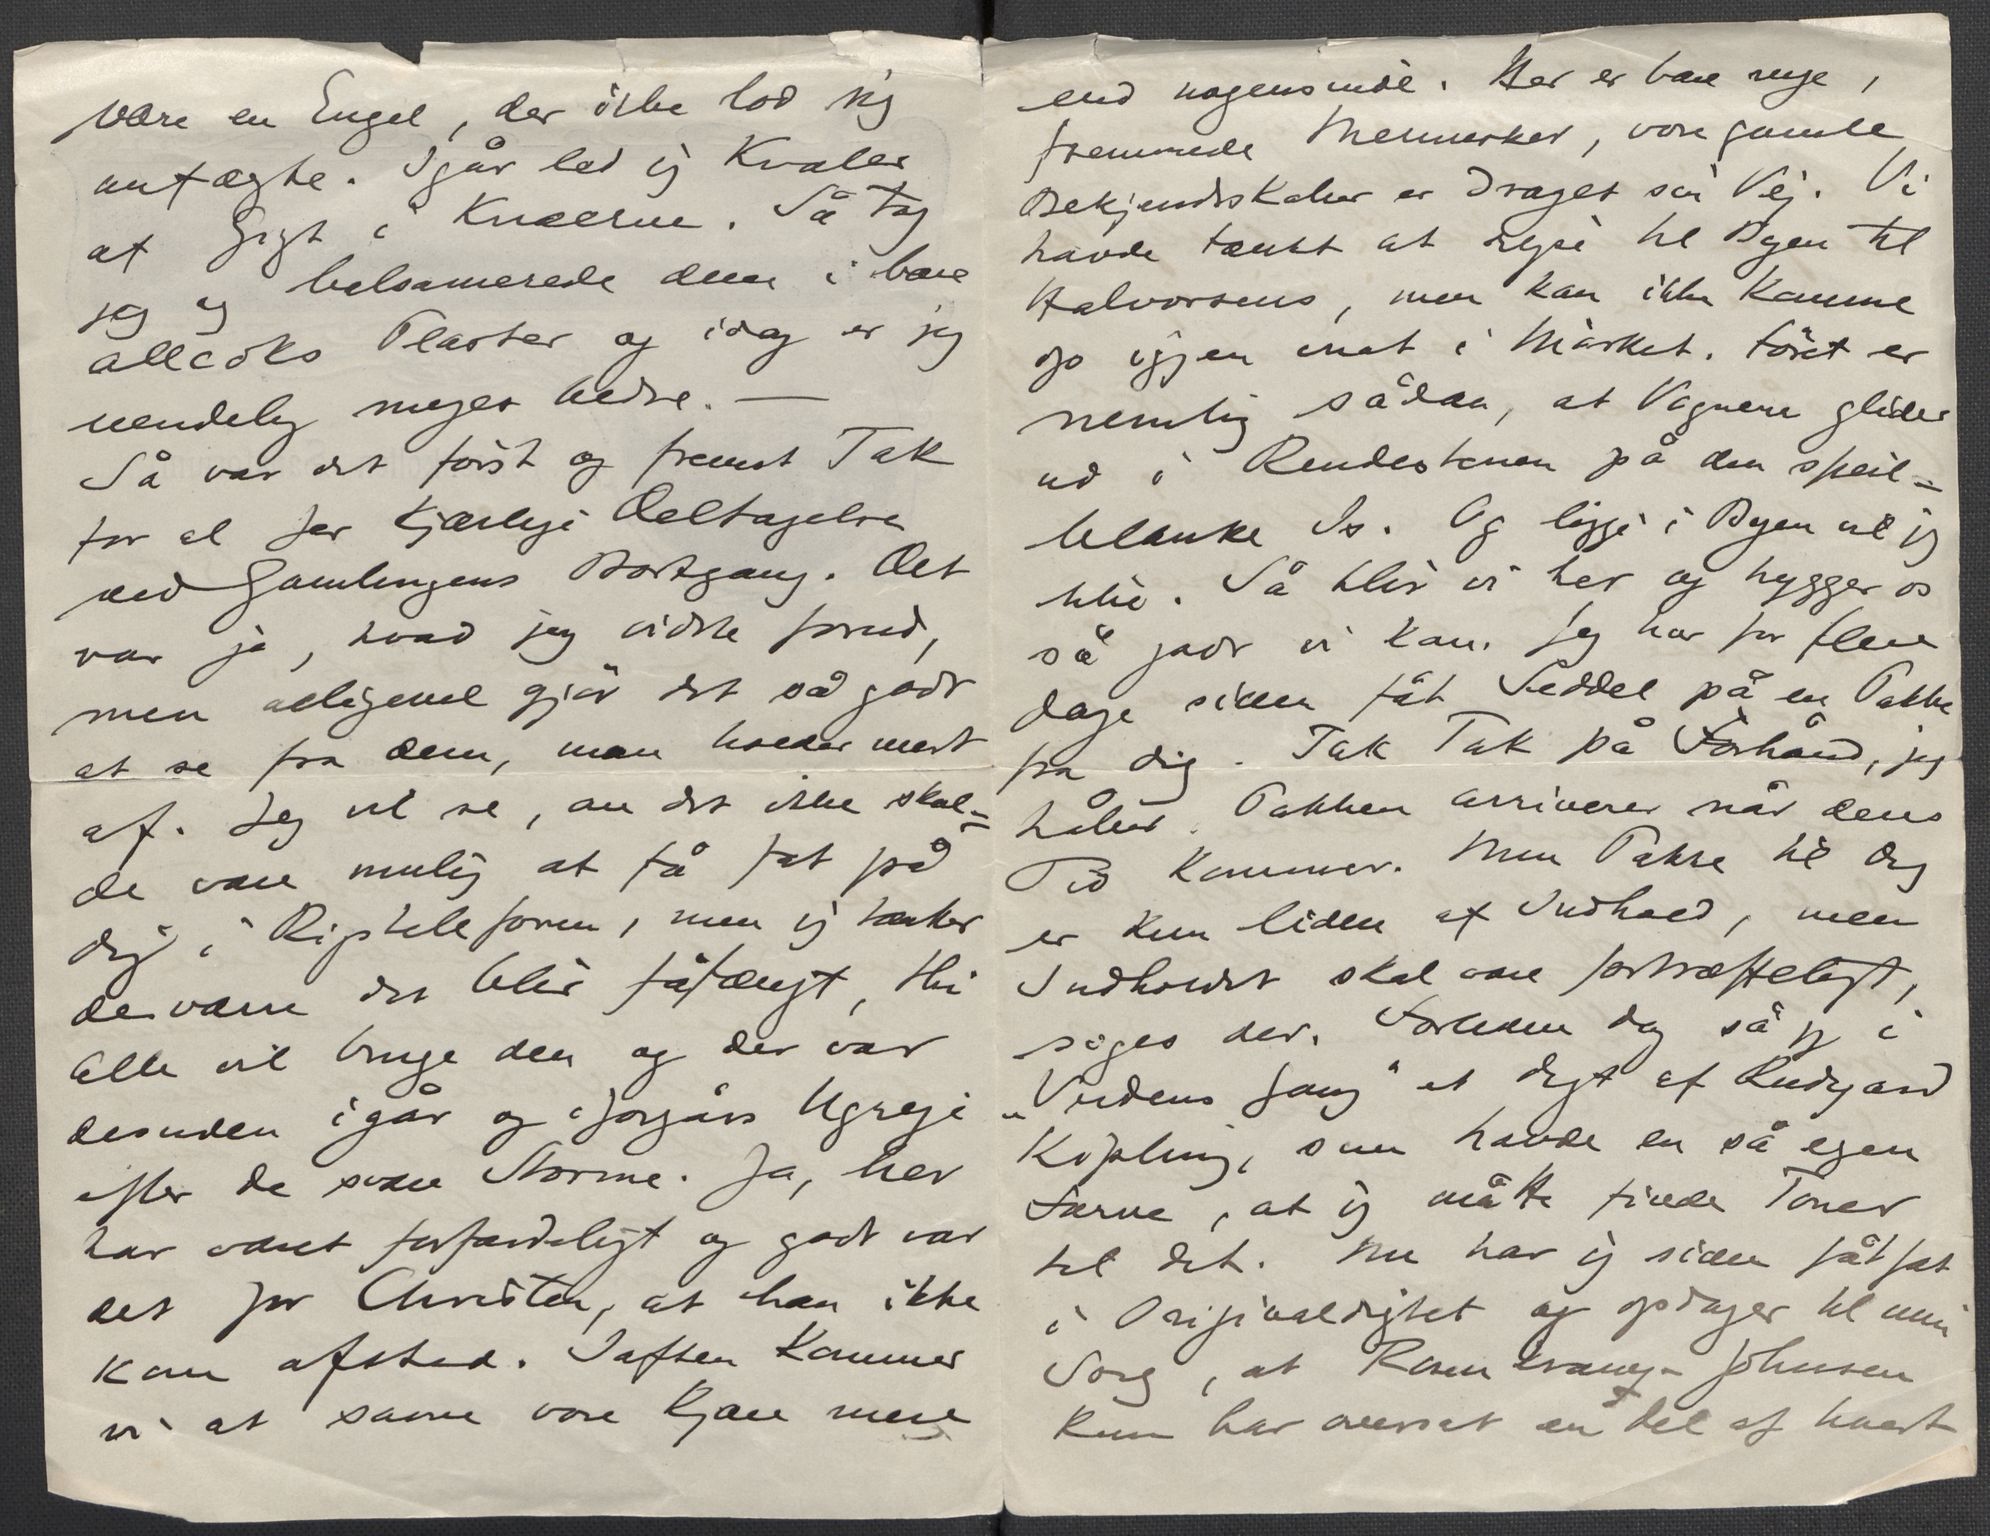 være en Engel, der ikke lod sig
anfægte. Igår led jeg Kvaler
af Gigt i Knæerne. Så tog
jeg og balsamerede dem i bare
allcoks Plaster og idag er jeg
uendelig meget bedre. —
Så var det først og fremst Tak
for al Jer kjærlige Deltagelse
ved Gamlingens Bortgang. Det
var jo, hvad jeg vidste forud,
men alligevel gjør det så godt
at se fra dem, man holder mest
af. Jeg vil se, om det ikke skul=
de være mulig at få fat på
dig i Rigstelefonen, men jeg tænker
desværre det blir fåfængt, thi
alle vil bruge den og der var
desuden igår og iforgårs Ugreje
efter de svære Storme. Ja, her
har været forfærdeligt og godt var
det for Christen, at han ikke
kom afsted. Iaften kommer
vi at savne vore Kjære mere
end nogensinde. Her er bare nye,
fremmede Mennesker, vore gamle
Bekjendtskaber er draget sin Vej. Vi
havde tænkt at rejse til Byen til
Halvorsens, men kan ikke komme
op igjen inat i Mørket. Føret er
nemlig sådan, at Vognene glider
ud i Rendestenen på den speil=
blanke Is. Og ligge i Byen vil jeg
ikke. Så blir vi her og hygger os
så godt vi kan. Jeg har for flere
dage siden fåt Seddel på en Pakke
fra dig. Tak Tak på Forhånd, jeg
håber Pakken arriverer når dens
Tid kommer. Min Pakke til dig
er kun liden af Indhold, men
Indholdet skal være fortræffeligt,
siges der. Forleden dag så jeg i
„Verdens Gang" et digt af Rudyard
Kipling, som havde en så egen
Farve, at jeg måtte finde Toner
til det. Nu har jeg siden fåt fat
i Originaldigtet og opdager til min
Sorg, at Rosenkrantz-Johnsen
kun har oversat en del af hvert